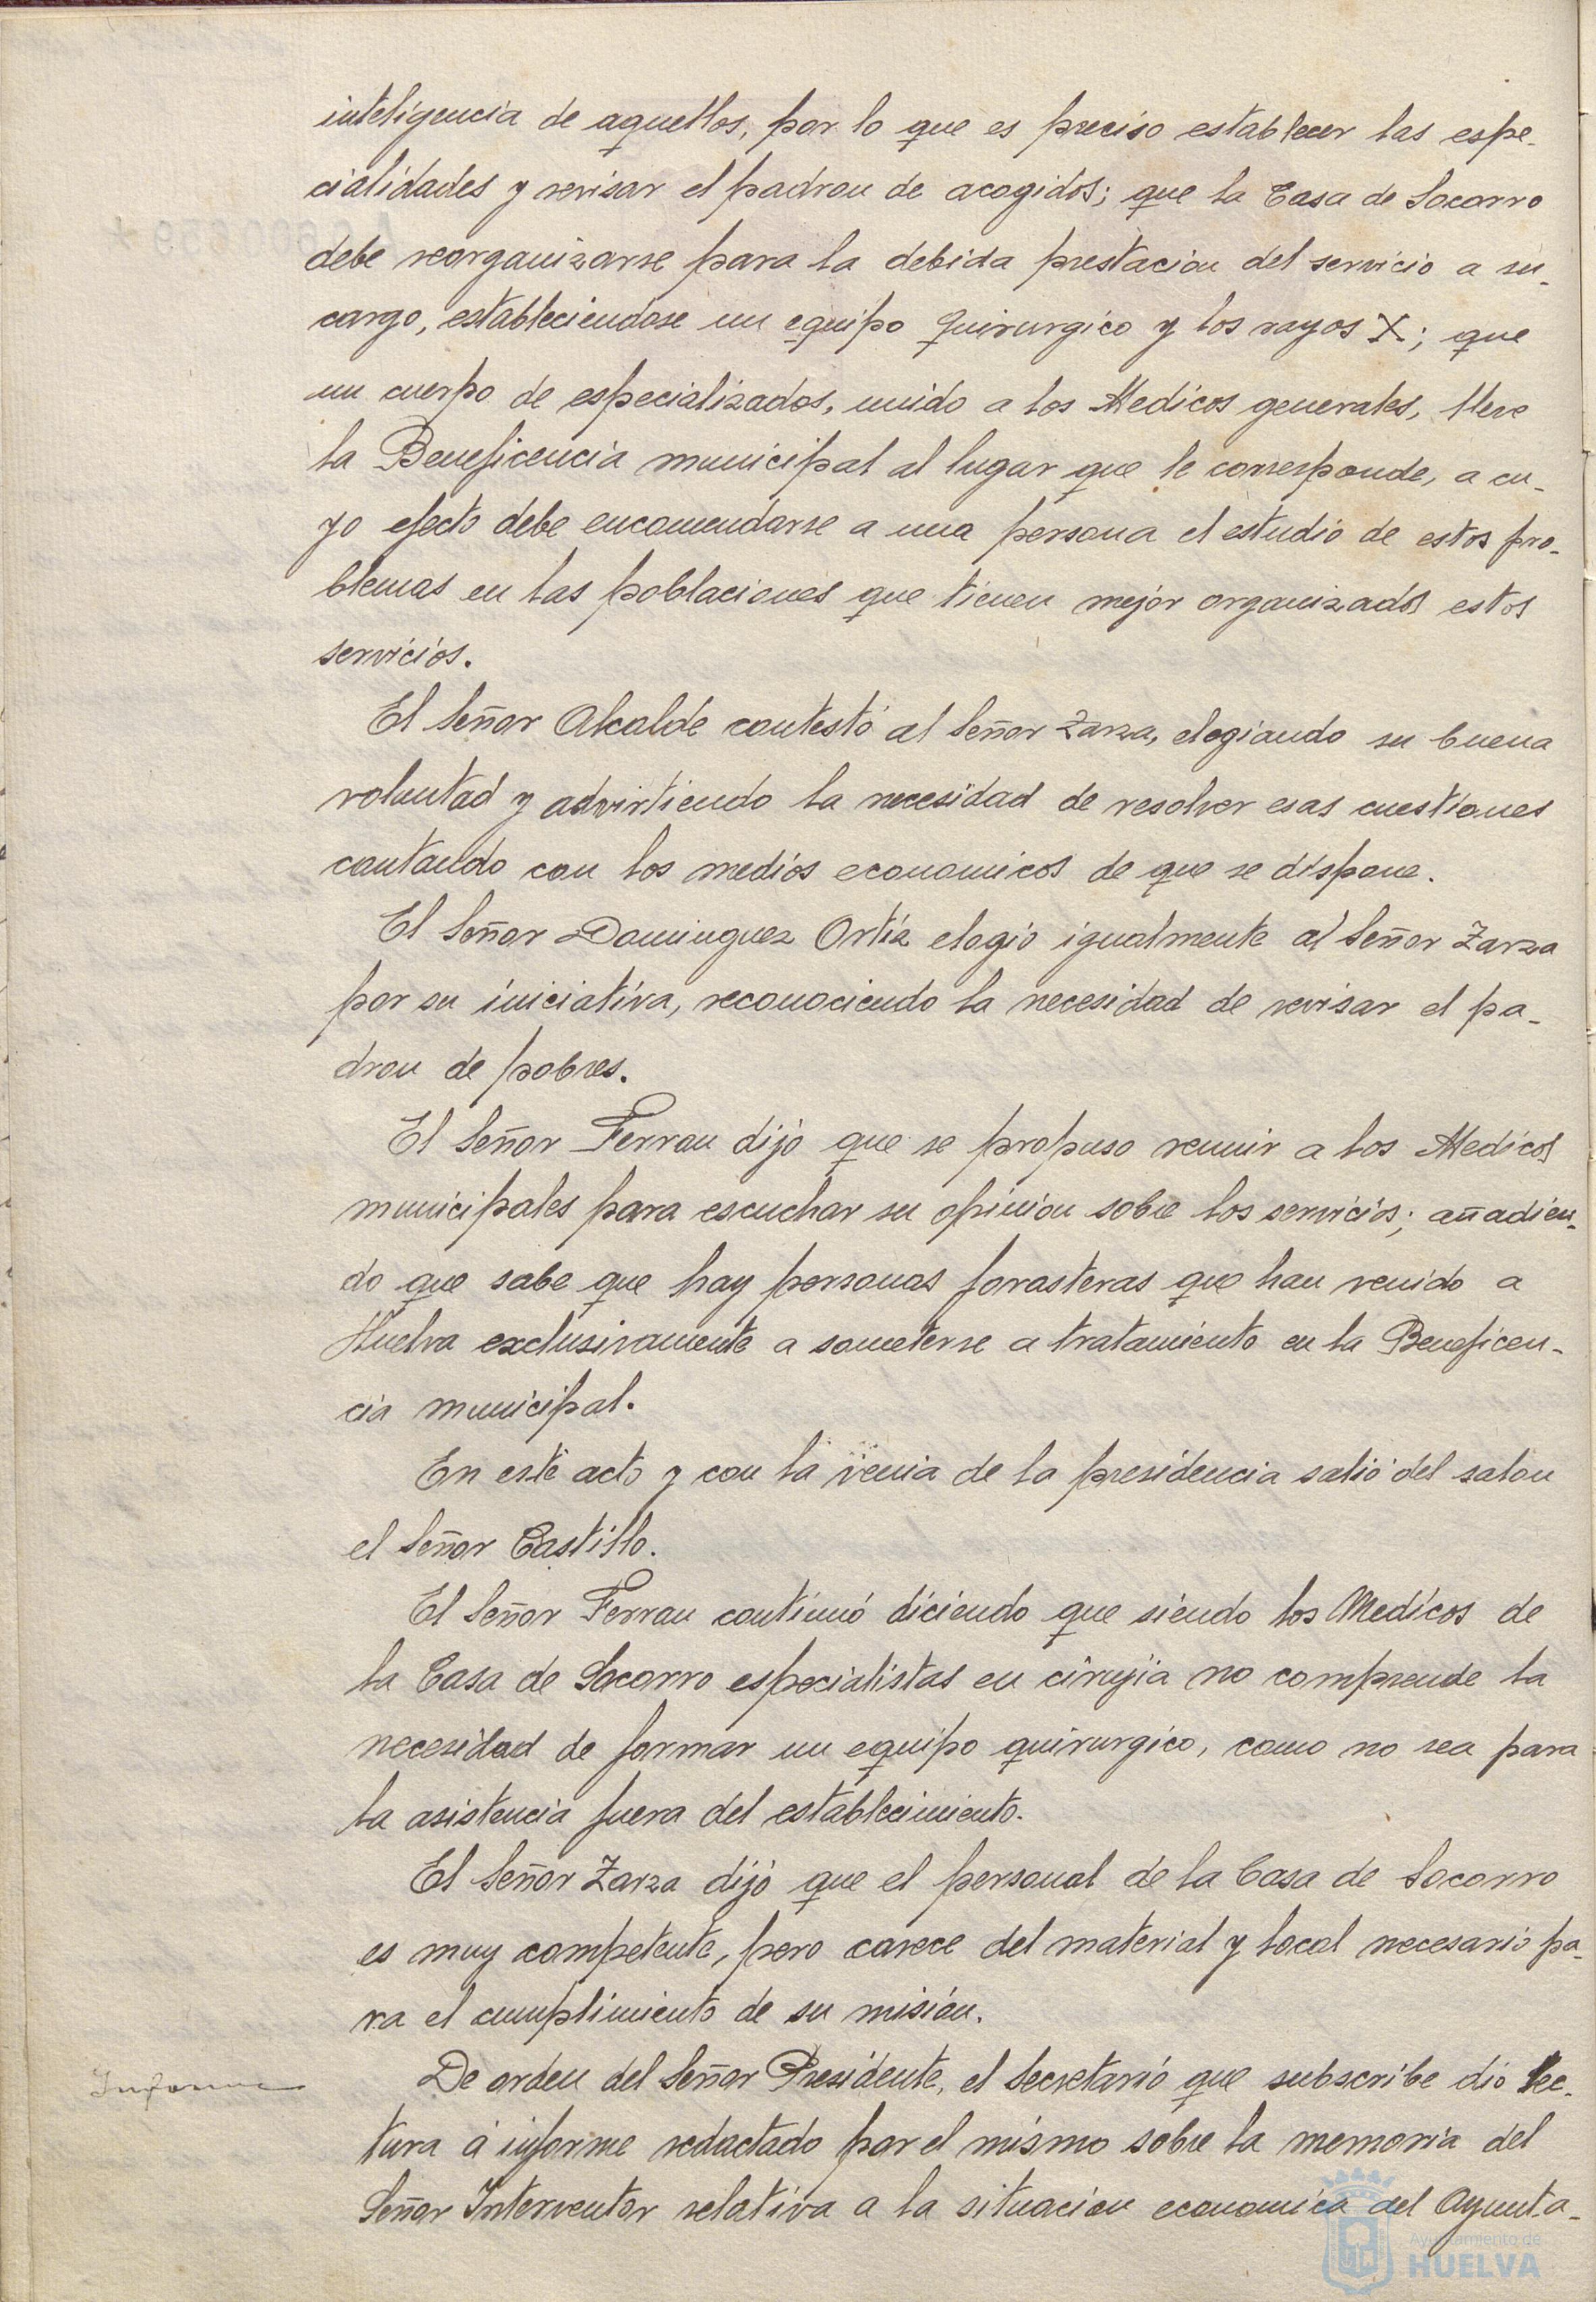 inteligencia de aquellos, por lo que es preciso establecer las espe-
cialidades y revisar el padron de acogidos; que la Casa de Socorro
debe reorganizarse para la debida prestacion del servicio a su
cargo, estableciendose un equipo quirurgico y los rayos X; que
un cuerpo de especializados, unido a los Medicos generales, lleve
la Beneficencia municipal al lugar que le corresponde, a cu-
yo efecto debe encomendarse a una persona el estudio de estos pro-
blemas en las poblaciones que tienen mejor organizados estos
servicios.
El Señor Alcalde contestó al Señor Zarza, elogiando su buena
voluntad y advirtiendo la necesidad de resolver esas cuestiones
contando con los medios economicos de que se dispone.
El Señor Dominguez Ortiz elogio igualmente al Señor Zarza
por su iniciativa, reconociendo la necesidad de revisar el pa-
dron de pobres.
El Señor Ferrau dijo que se propuso reunir a los Medicos
municipales para escuchar su opinion sobre los servicios; añadien-
do que sabe que hay personas forasteras que han venido a
Huelva exclusivamente a someterse a tratamiento en la Beneficen-
cia municipal.
En este acto y con la venia de la presidencia salió del salon
el Señor Castillo.
El Señor Ferrau continuó diciendo que siendo los Medicos de
la Casa de Socorro especialistas en cirujia no comprende la
necesidad de formar un equipo quirurgico, como no sea para
la asistencia fuera del establecimiento.
El Señor Zarza dijo que el personal de la Casa de Socorro
es muy competente, pero carece del material y local necesario pa-
ra el cumplimiento de su misión.
Informe
De orden del Señor Presidente, el Secretario que subscribe dio lec-
tura á informe redactado por el mismo sobre la memoria del
Señor Interventor relativa a la situacion economica del Ayunta-
Ayuntamiento de
HUELVA